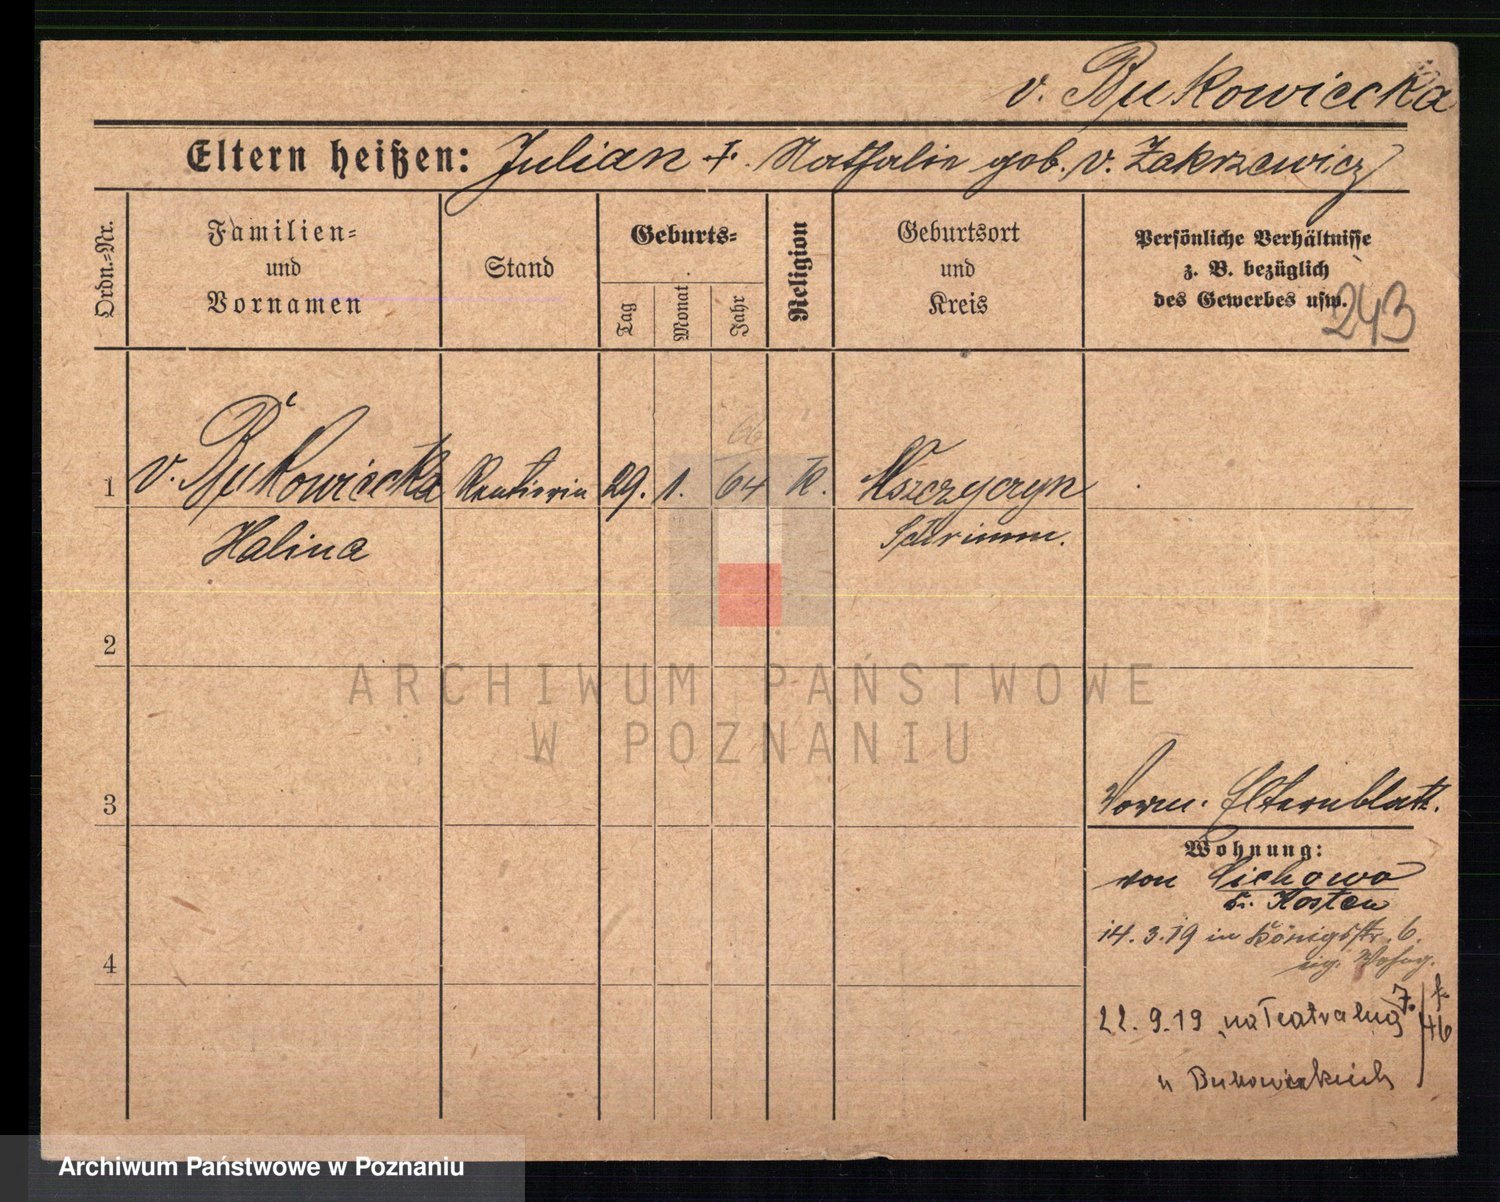 v. Bukowiecka
Eltern heißen: Julian †. Nathalie geb. v. Zakrzewicz
Ordn.=Nr.
Familien=
und
Vornamen
Stand
Geburts=
Tag
Monat
Jahr
Religion
Geburtsort
und
Kreis
Persönliche Verhältnisse
z. B. bezüglich
des Gewerbes usw.
243
1 v. Bukowiecka Rentierin 29. 1. 64 K. Mszczyczyn
66
Halina
Schrimm.
2
3
4
Vorm. Elternblatt.
Wohnung:
von Cichowo
Kr. Kosten
14.3.19 in Königsstr. 6.
eig. Wohng.
22.9.19 na Teatralną 7.
46
u Bukowieckich
ARCHIWUM PAŃSTWOWE
W POZNANIU
Archiwum Państwowe w Poznaniu